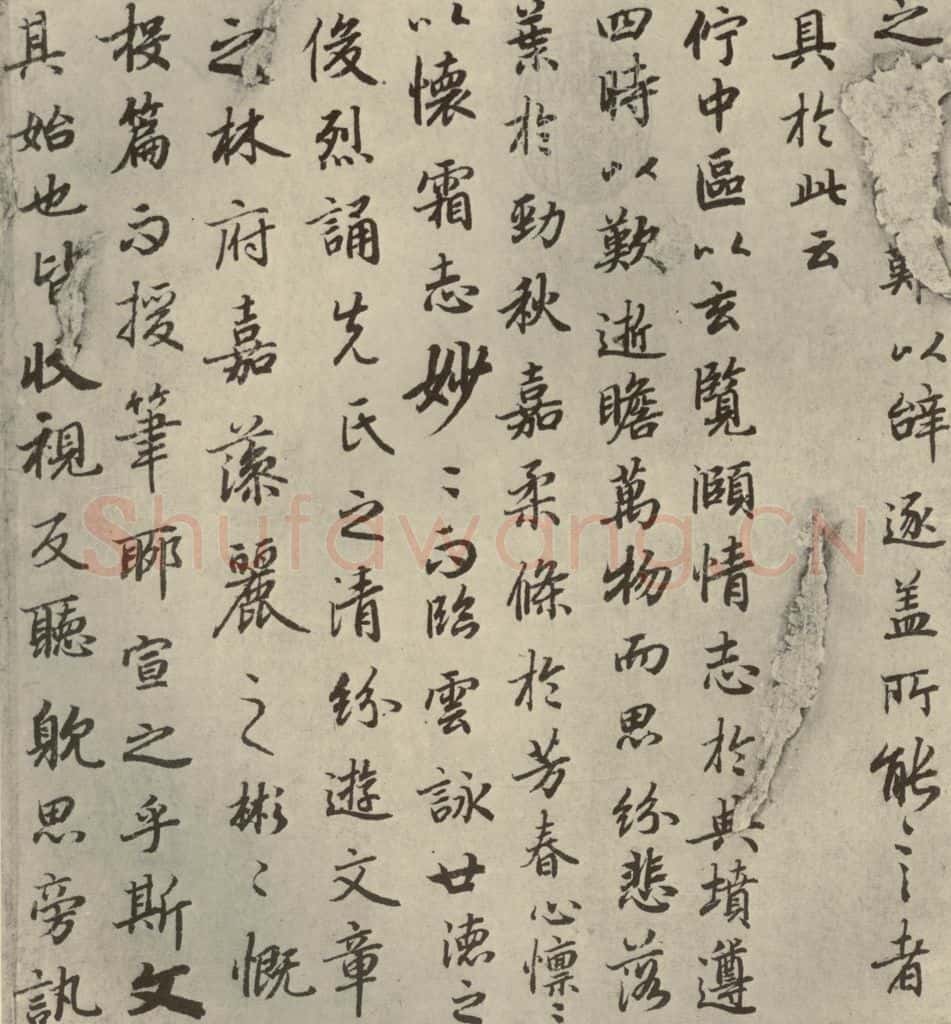 之難以辝逐盖所能〻言者
具於此云
佇中區以玄覽頤情志於典墳遵
四時以歎逝瞻萬物而思紛悲落
葉於勁秋嘉柔條於芳春心懔〻
以懷霜志妙〻而臨雲詠世德之
俊烈誦先氏之清紛遊文章
之林府嘉藻麗之彬〻慨
投篇而援筆聊宣之乎斯文
其始也皆收視反聽躭思旁訊
Shufawang.CN